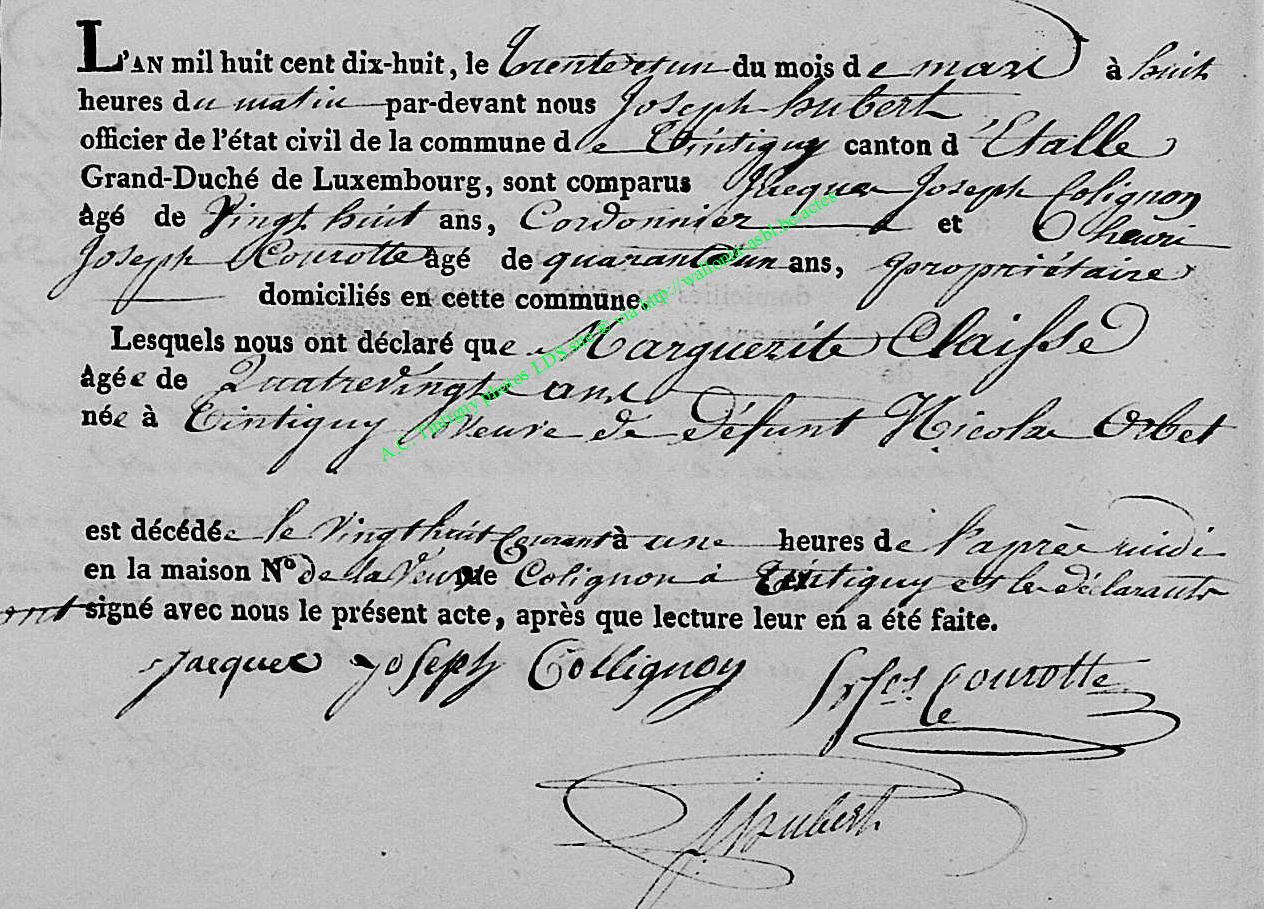 L'AN mil huit cent dix-huit, le trente et un du mois de mars à huit
heures du matin par-devant nous Joseph hubert
officier de l'état civil de la commune de Tintigny canton d'Etalle
Grand-Duché de Luxembourg, sont comparus Jacques Joseph Colignon
âgé de Vingt huit ans, Cordonnier et henri
Joseph Courotte âgé de quarante un ans, propriétaire
domiciliés en cette commune.
Lesquels nous ont déclaré que Marguerite Claisse
âgée de Quatrevingt ans
née à Tintigny Veuve de Défunt Nicolas Orbet
est décédée le Vingt huit Courant à une heures de l'après midi
en la maison N.º de la Veuve Colignon à Tintigny et les déclarants
ont signé avec nous le présent acte, après que lecture leur en a été faite.
jacques joseph Collignon Courotte
J. Hubert
A.C. Tintigny photos LDS sur © via http://wallonia-asbl.be:actes